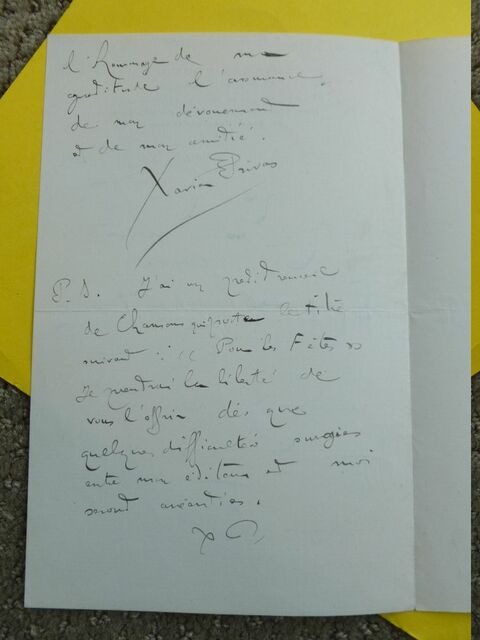 l'hommage de ma
gratitude l'assurance
de mon dévouement
et de mon amitié.
Xavier Privas
P. S. J'ai un petit recueil
de Chansons qui porte le titre
suivant : " Pour les Fêtes "
Je prendrai la liberté de
vous l'offrir dès que
quelques difficultés surgies
entre mon éditeur et moi
seront anéanties.
X P